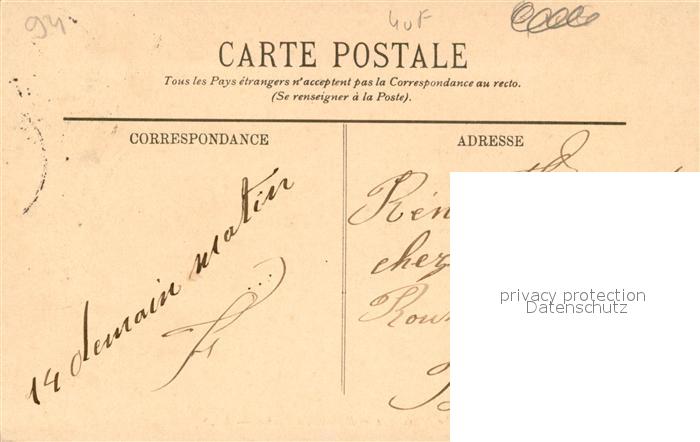 94
40F
CARTE POSTALE
Tous les Pays étrangers n'acceptent pas la Correspondance au recto.
(Se renseigner à la Poste).
CORRESPONDANCE
ADRESSE
demain matin
Rén
chez
privacy protection
Datenschutz